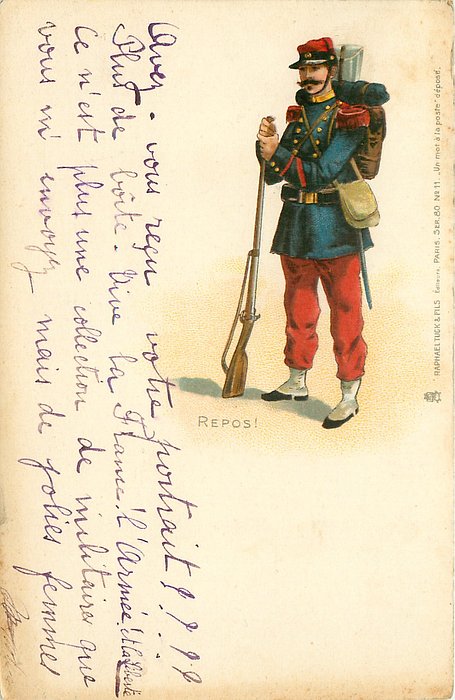 Avez-vous reçu votre portrait ? ? ? ?
Plus de boîte. Vive la France! l'Armée! & la Liberté
Ce n'est plus une collection de militaires que
vous m'envoyez mais de jolies femmes
REPOS!
RAPHAEL TUCK & FILS Editeurs, PARIS. SER. 80 No 11 „Un mot à la poste" déposé.